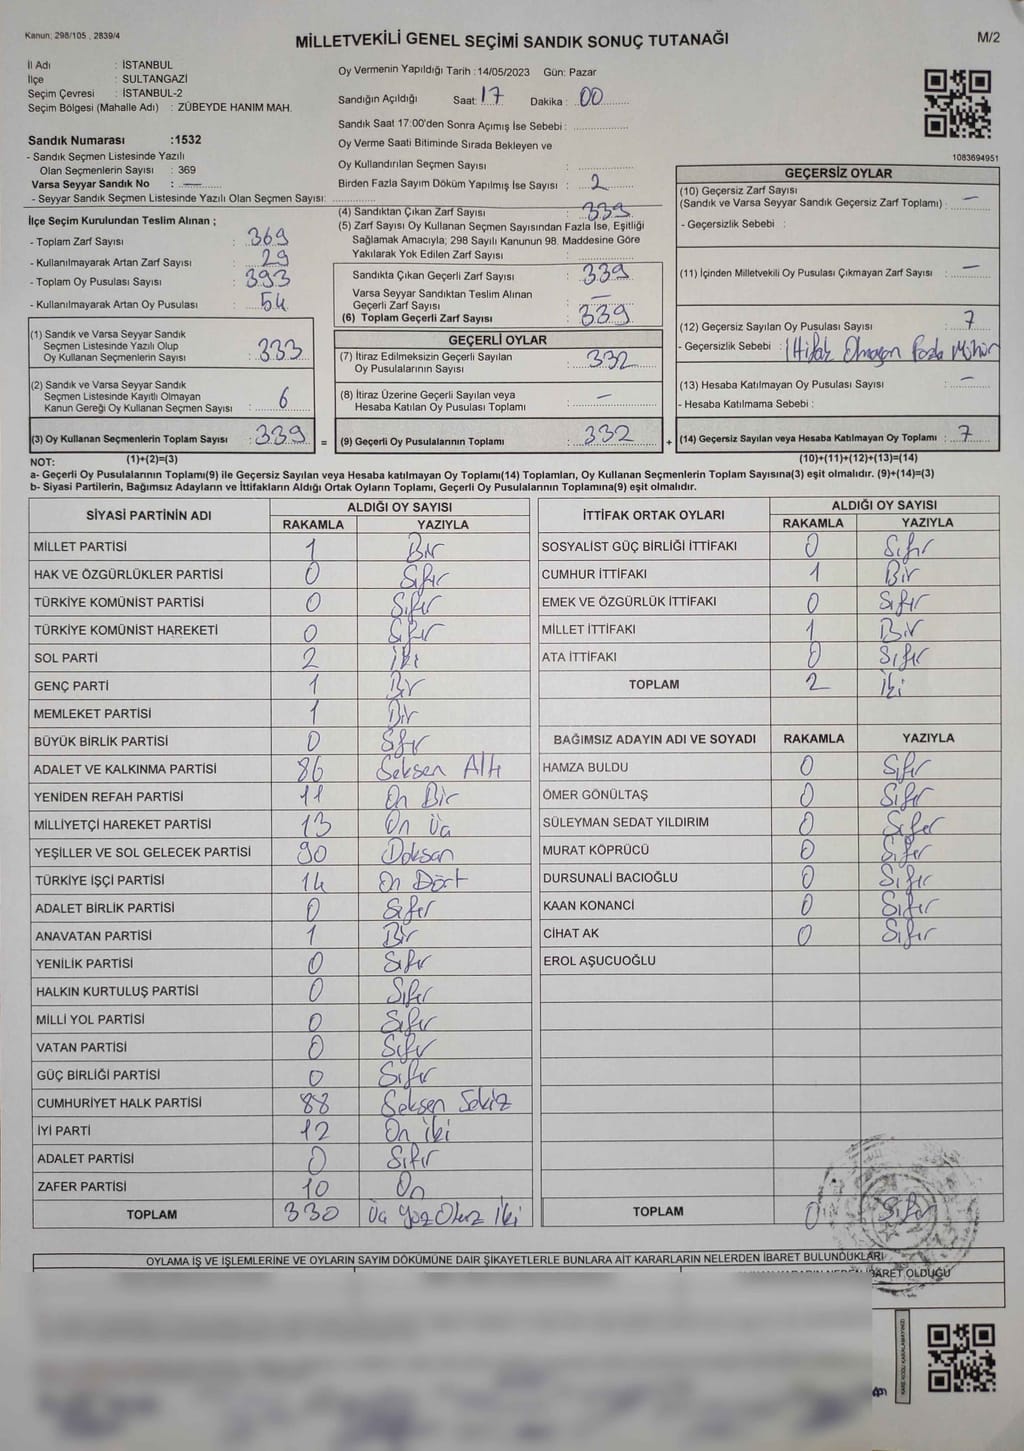 Kanun: 298/105 , 2839/4
MİLLETVEKİLİ GENEL SEÇİMİ SANDIK SONUÇ TUTANAĞI
M/2
İl Adı : İSTANBUL
İlçe : SULTANGAZİ
Seçim Çevresi : İSTANBUL-2
Seçim Bölgesi (Mahalle Adı) : ZÜBEYDE HANIM MAH.
Sandık Numarası :1532
- Sandık Seçmen Listesinde Yazılı
Olan Seçmenlerin Sayısı : 369
Varsa Seyyar Sandık No : —
- Seyyar Sandık Seçmen Listesinde Yazılı Olan Seçmen Sayısı:
Oy Vermenin Yapıldığı Tarih :14/05/2023 Gün: Pazar
Sandığın Açıldığı Saat: 17 Dakika : 00
Sandık Saat 17:00'den Sonra Açımış İse Sebebi :
Oy Verme Saati Bitiminde Sırada Bekleyen ve
Oy Kullandırılan Seçmen Sayısı :
Birden Fazla Sayım Döküm Yapılmış İse Sayısı : 2
1083694951
İlçe Seçim Kurulundan Teslim Alınan ;
- Toplam Zarf Sayısı : 369
- Kullanılmayarak Artan Zarf Sayısı : 29
- Toplam Oy Pusulası Sayısı : 393
- Kullanılmayarak Artan Oy Pusulası : 54
(1) Sandık ve Varsa Seyyar Sandık
Seçmen Listesinde Yazılı Olup
Oy Kullanan Seçmenlerin Sayısı : 333
(2) Sandık ve Varsa Seyyar Sandık
Seçmen Listesinde Kayıtlı Olmayan
Kanun Gereği Oy Kullanan Seçmen Sayısı : 6
(3) Oy Kullanan Seçmenlerin Toplam Sayısı : 339 =
(4) Sandıktan Çıkan Zarf Sayısı : 339
(5) Zarf Sayısı Oy Kullanan Seçmen Sayısından Fazla İse, Eşitliği
Sağlamak Amacıyla; 298 Sayılı Kanunun 98. Maddesine Göre
Yakılarak Yok Edilen Zarf Sayısı :
Sandıkta Çıkan Geçerli Zarf Sayısı : 339
Varsa Seyyar Sandıktan Teslim Alınan
Geçerli Zarf Sayısı : —
(6) Toplam Geçerli Zarf Sayısı : 339
GEÇERLİ OYLAR
(7) İtiraz Edilmeksizin Geçerli Sayılan
Oy Pusulalarının Sayısı : 332
(8) İtiraz Üzerine Geçerli Sayılan veya
Hesaba Katılan Oy Pusulası Toplamı : —
(9) Geçerli Oy Pusulalarının Toplamı : 332 +
GEÇERSİZ OYLAR
(10) Geçersiz Zarf Sayısı
(Sandık ve Varsa Seyyar Sandık Geçersiz Zarf Toplamı) : —
- Geçersizlik Sebebi :
(11) İçinden Milletvekili Oy Pusulası Çıkmayan Zarf Sayısı : —
(12) Geçersiz Sayılan Oy Pusulası Sayısı : 7
- Geçersizlik Sebebi : İttifak Olmayan Fazla Mühür
(13) Hesaba Katılmayan Oy Pusulası Sayısı : —
- Hesaba Katılmama Sebebi :
(14) Geçersiz Sayılan veya Hesaba Katılmayan Oy Toplamı : 7
NOT: (1)+(2)=(3) (10)+(11)+(12)+(13)=(14)
a- Geçerli Oy Pusulalarının Toplamı(9) ile Geçersiz Sayılan veya Hesaba katılmayan Oy Toplamı(14) Toplamları, Oy Kullanan Seçmenlerin Toplam Sayısına(3) eşit olmalıdır. (9)+(14)=(3)
b- Siyasi Partilerin, Bağımsız Adayların ve İttifakların Aldığı Ortak Oyların Toplamı, Geçerli Oy Pusulalarının Toplamına(9) eşit olmalıdır.
SİYASİ PARTİNİN ADI ALDIĞI OY SAYISI
RAKAMLA YAZIYLA
MİLLET PARTİSİ 1 Bir
HAK VE ÖZGÜRLÜKLER PARTİSİ 0 Sıfır
TÜRKİYE KOMÜNİST PARTİSİ 0 Sıfır
TÜRKİYE KOMÜNİST HAREKETİ 0 Sıfır
SOL PARTİ 2 İki
GENÇ PARTİ 1 Bir
MEMLEKET PARTİSİ 1 Bir
BÜYÜK BİRLİK PARTİSİ 0 Sıfır
ADALET VE KALKINMA PARTİSİ 86 Seksen Altı
YENİDEN REFAH PARTİSİ 11 On Bir
MİLLİYETÇİ HAREKET PARTİSİ 13 On Üç
YEŞİLLER VE SOL GELECEK PARTİSİ 90 Doksan
TÜRKİYE İŞÇİ PARTİSİ 14 On Dört
ADALET BİRLİK PARTİSİ 0 Sıfır
ANAVATAN PARTİSİ 1 Bir
YENİLİK PARTİSİ 0 Sıfır
HALKIN KURTULUŞ PARTİSİ 0 Sıfır
MİLLİ YOL PARTİSİ 0 Sıfır
VATAN PARTİSİ 0 Sıfır
GÜÇ BİRLİĞİ PARTİSİ 0 Sıfır
CUMHURİYET HALK PARTİSİ 88 Seksen Sekiz
İYİ PARTİ 12 On iki
ADALET PARTİSİ 0 Sıfır
ZAFER PARTİSİ 10 On
TOPLAM 330 Üç Yüz Otuz İki
İTTİFAK ORTAK OYLARI ALDIĞI OY SAYISI
RAKAMLA YAZIYLA
SOSYALİST GÜÇ BİRLİĞİ İTTİFAKI 0 Sıfır
CUMHUR İTTİFAKI 1 Bir
EMEK VE ÖZGÜRLÜK İTTİFAKI 0 Sıfır
MİLLET İTTİFAKI 1 Bir
ATA İTTİFAKI 0 Sıfır
TOPLAM 2 İki
BAĞIMSIZ ADAYIN ADI VE SOYADI RAKAMLA YAZIYLA
HAMZA BULDU 0 Sıfır
ÖMER GÖNÜLTAŞ 0 Sıfır
SÜLEYMAN SEDAT YILDIRIM 0 Sıfır
MURAT KÖPRÜCÜ 0 Sıfır
DURSUNALİ BACIOĞLU 0 Sıfır
KAAN KONANCİ 0 Sıfır
CİHAT AK 0 Sıfır
EROL AŞUCUOĞLU
TOPLAM 0 Sıfır
OYLAMA İŞ VE İŞLEMLERİNE VE OYLARIN SAYIM DÖKÜMÜNE DAİR ŞİKAYETLERLE BUNLARA AİT KARARLARIN NELERDEN İBARET BULUNDUKLARI
İBARET OLDUĞU
KARE KODU KARALAMAYINIZ!